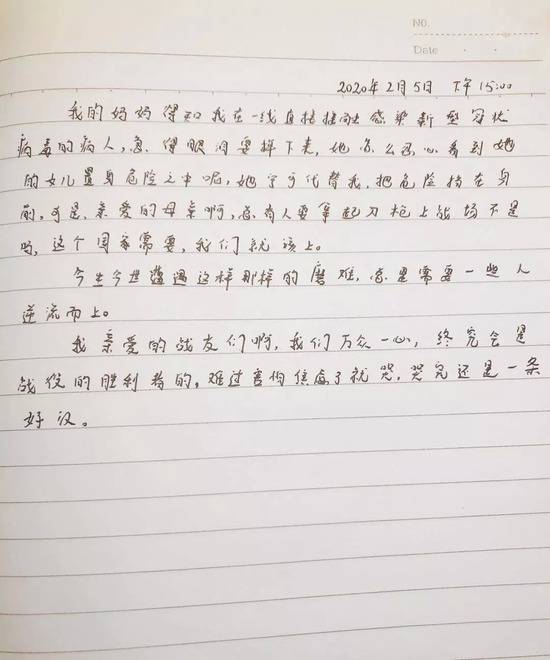 NO.
Date
2020年2月5日 下午15:00
我的妈妈得知我在一线直接接触感染新型冠状
病毒的病人,急得眼泪要掉下来,她怎么忍心看到她
的女儿置身危险之中呢,她宁可代替我,把危险挡在身
前,可是,亲爱的母亲啊,总有人要拿起刀枪上战场不是
吗,这个国家需要,我们就该上。
今生今世遭遇这样那样的磨难,总是需要一些人
逆流而上。
我亲爱的战友们啊,我们万众一心,终究会是
战役的胜利者的。难过害怕焦虑了就哭,哭完还是一条
好汉。